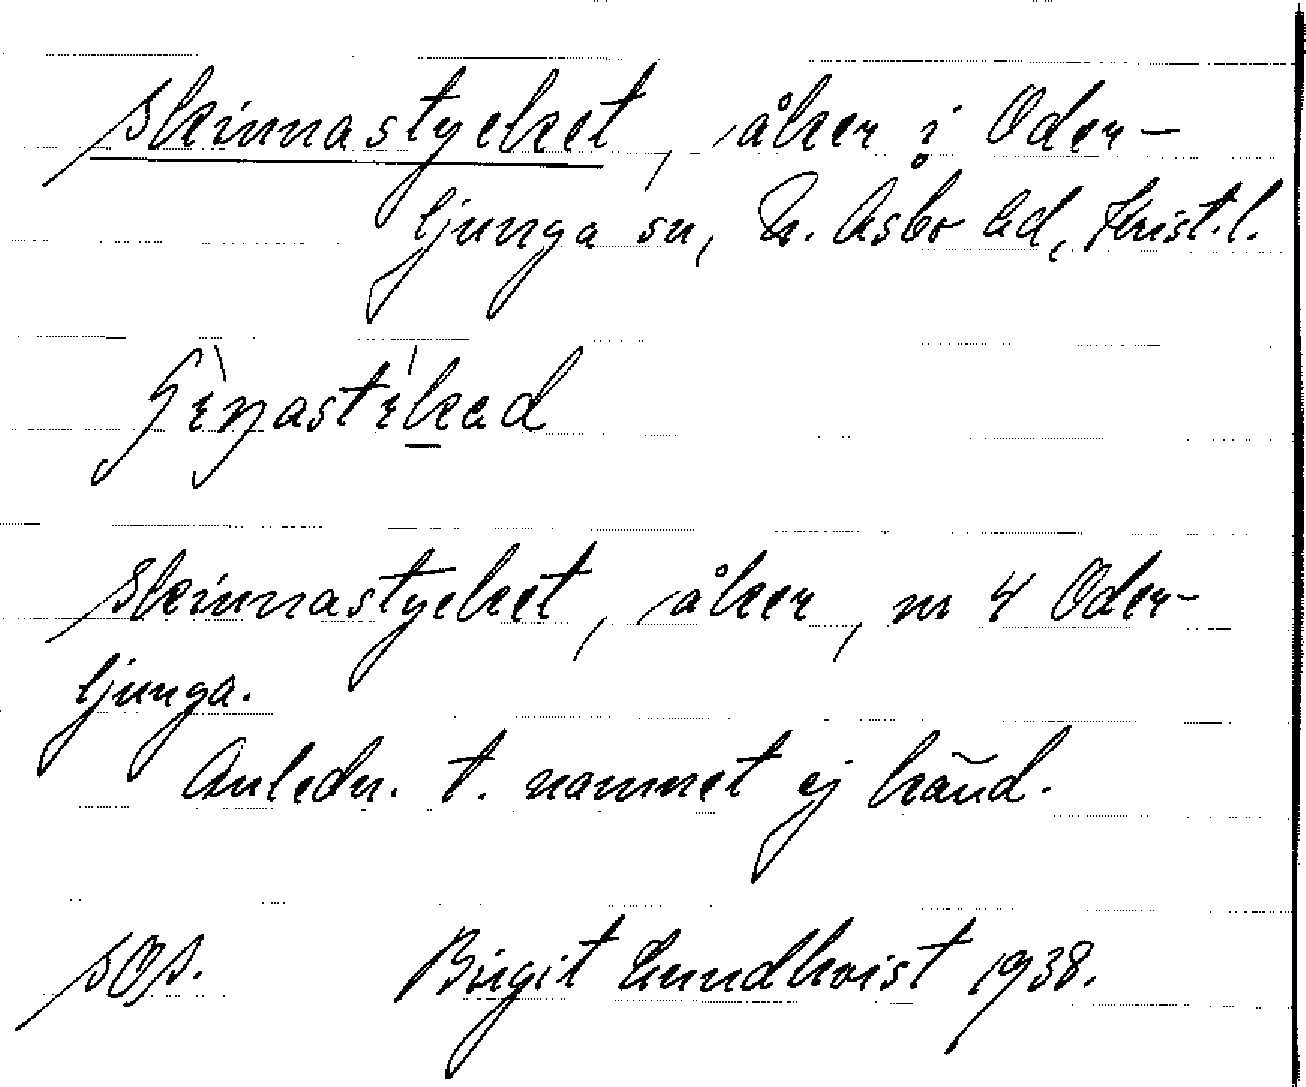 Skinnastycket, åker i Oder-
ljunga sn, N. Åsbo hd, Krist.l.
Skinnastycket, åker, nr 4 Oder-
ljunga.
Anledn. t. namnet ej känd.
SOS. Birgit Lundkvist 1938.